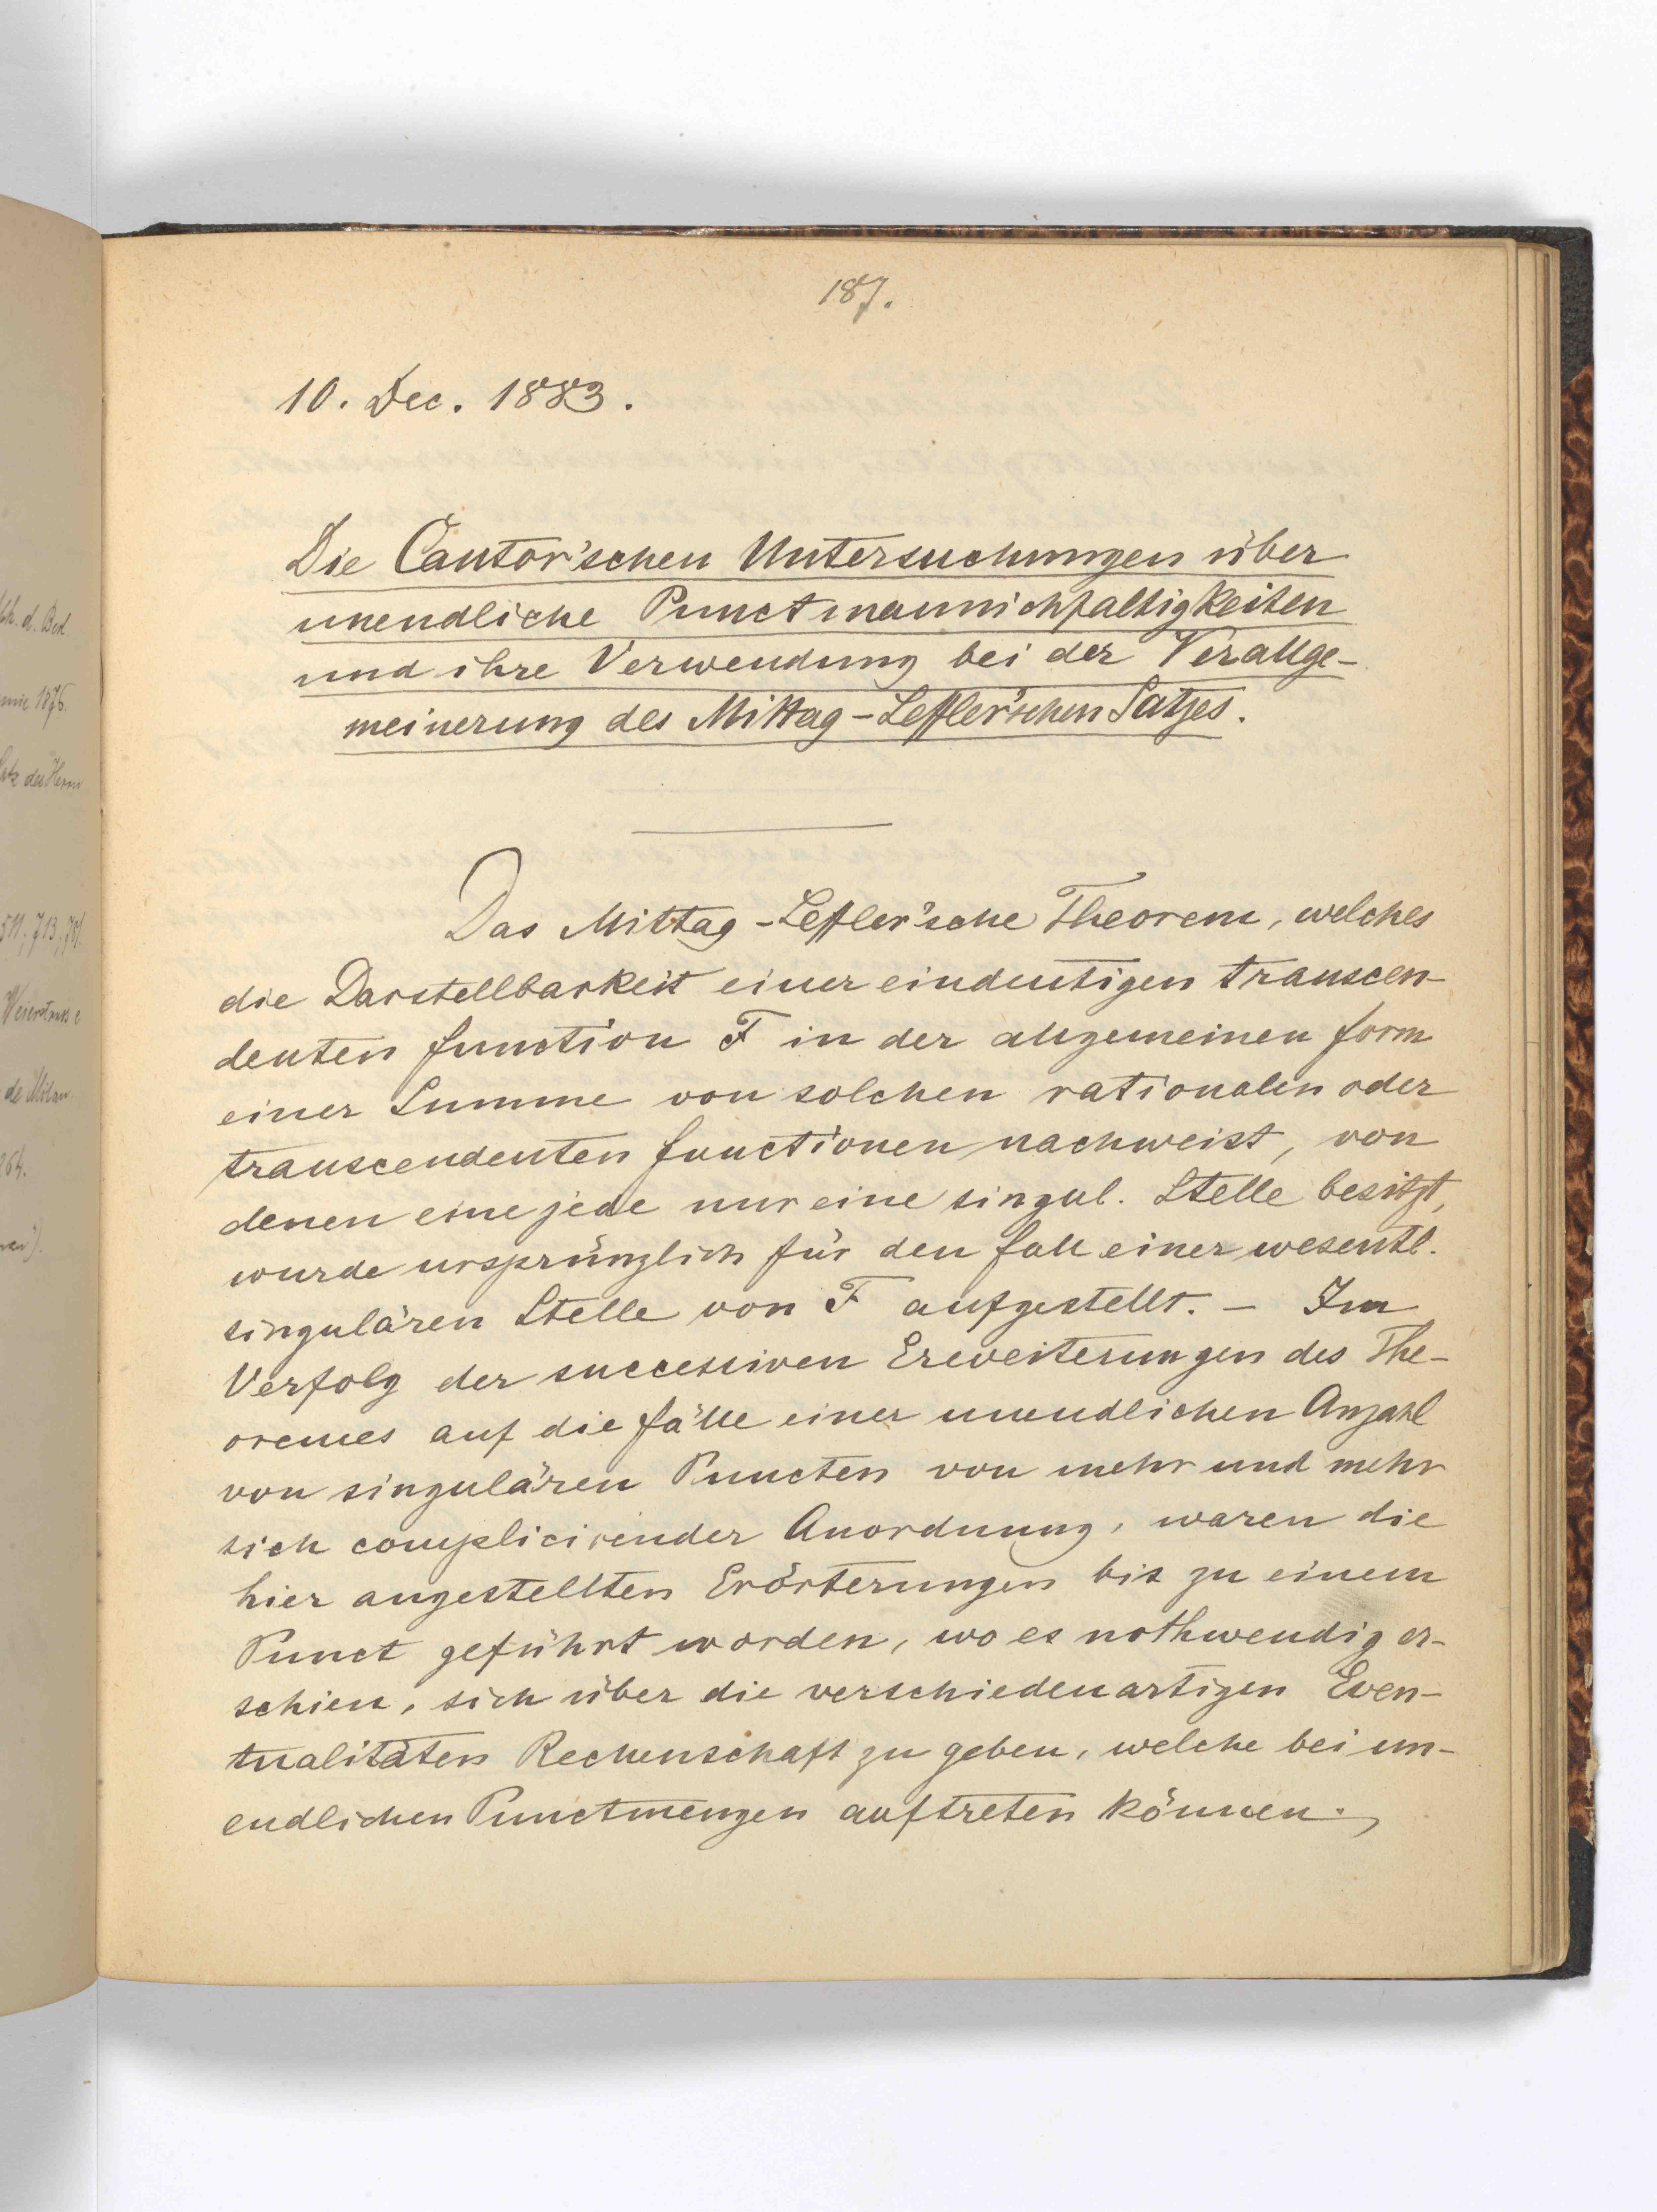 187.
10. Dec. 1883.
Die Cantor'schen Untersuchungen über
unendliche Punctmannichfaltigkeiten
und ihre Verwendung bei der Verallge-
meinerung des Mittag-Leffler'schen Satzes.
Das Mittag-Leffler'sche Theorem, welches
die Darstellbarkeit einer eindeutigen transcen-
denten function F in der allgemeinen form
einer Summe von solchen rationalen oder
transcendenten functionen nachweist, von
denen eine jede nur eine singul. Stelle besitzt,
wurde ursprünglich für den fall einer wesentl.
singulären Stelle von F aufgestellt. – Im
Verfolg der successiven Erweiterungen des The-
oremes auf die fälle einer unendlichen Anzahl
von singulären Puncten von mehr und mehr
sich complicirender Anordnung, waren die
hier angestellten Erörterungen bis zu einem
Punct geführt worden, wo es nothwendig er-
schien, sich über die verschiedenartigen Even-
tualitäten Rechenschaft zu geben, welche bei un-
endlichen Punctmengen auftreten können.
d. Bed.
1876.
des Herrn
511; 713;
de Milan.
264.